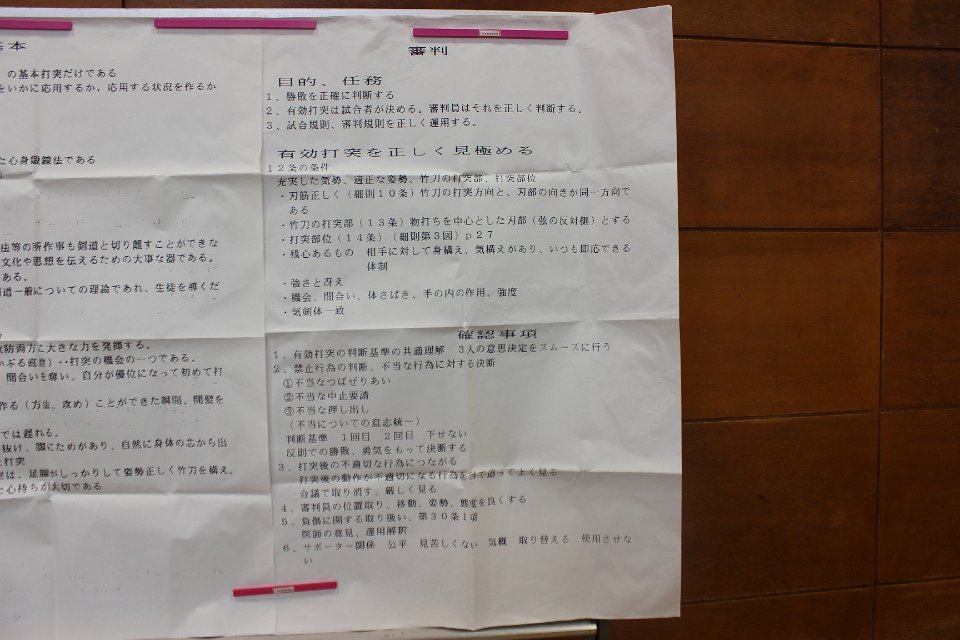 基本
の基本打突だけである
をいかに応用するか，応用する状況を作るか
た心身鍛錬法である
法等の所作事も剣道と切り離すことができな
文化や思想を伝えるための大事な器である。
ある。
剣道一般についての理論であれ、生徒を導くだ
攻防両方に大きな力を発揮する。
かぶる直前）‥打突の機会の一つである。
間合いを奪い、自分が優位になって初めて打
作る（方法、攻め）ことができた瞬間、間髪を
では遅れる。
抜け、腹にためがあり、自然に身体の芯から出
打突
は、足腰がしっかりして姿勢正しく竹刀を構え、
た心持ちが大切である
審判
目的、任務
１、勝敗を正確に判断する
２、有効打突は試合者が決める。審判員はそれを正しく判断する。
３、試合規則、審判規則を正しく運用する。
有効打突を正しく見極める
１２条の条件
充実した気勢、適正な姿勢、竹刀の打突部、打突部位
・刃筋正しく（細則１０条）竹刀の打突方向と、刃部の向きが同一方向で
ある
・竹刀の打突部（１３条）物打ちを中心とした刃部（弦の反対側）とする
・打突部位（１４条）（細則第３図）ｐ２７
・残心あるもの　相手に対して身構え、気構えがあり、いつも即応できる
体制
・強さと冴え
・機会、間合い、体さばき、手の内の作用、強度
・気剣体一致
確認事項
１、有効打突の判断基準の共通理解　３人の意思決定をスムーズに行う
２、禁止行為の判断、不当な行為に対する決断
①不当なつばぜりあい
②不当な中止要請
③不当な押し出し
（不当についての意志統一）
判断基準　１回目　２回目　下せない
反則での勝敗、勇気をもって決断する
３、打突後の不適切な行為につながる
打突後の動作が不適切になる行為を目で追ってよく見る
合議で取り消す、厳しく見る
４、審判員の位置取り、移動、姿勢、態度を良くする
５、負傷に関する取り扱い、第３０条１項
医師の意見、運用解釈
６、サポーター関係　公平　見苦しくない　気概　取り替える　使用させな
い